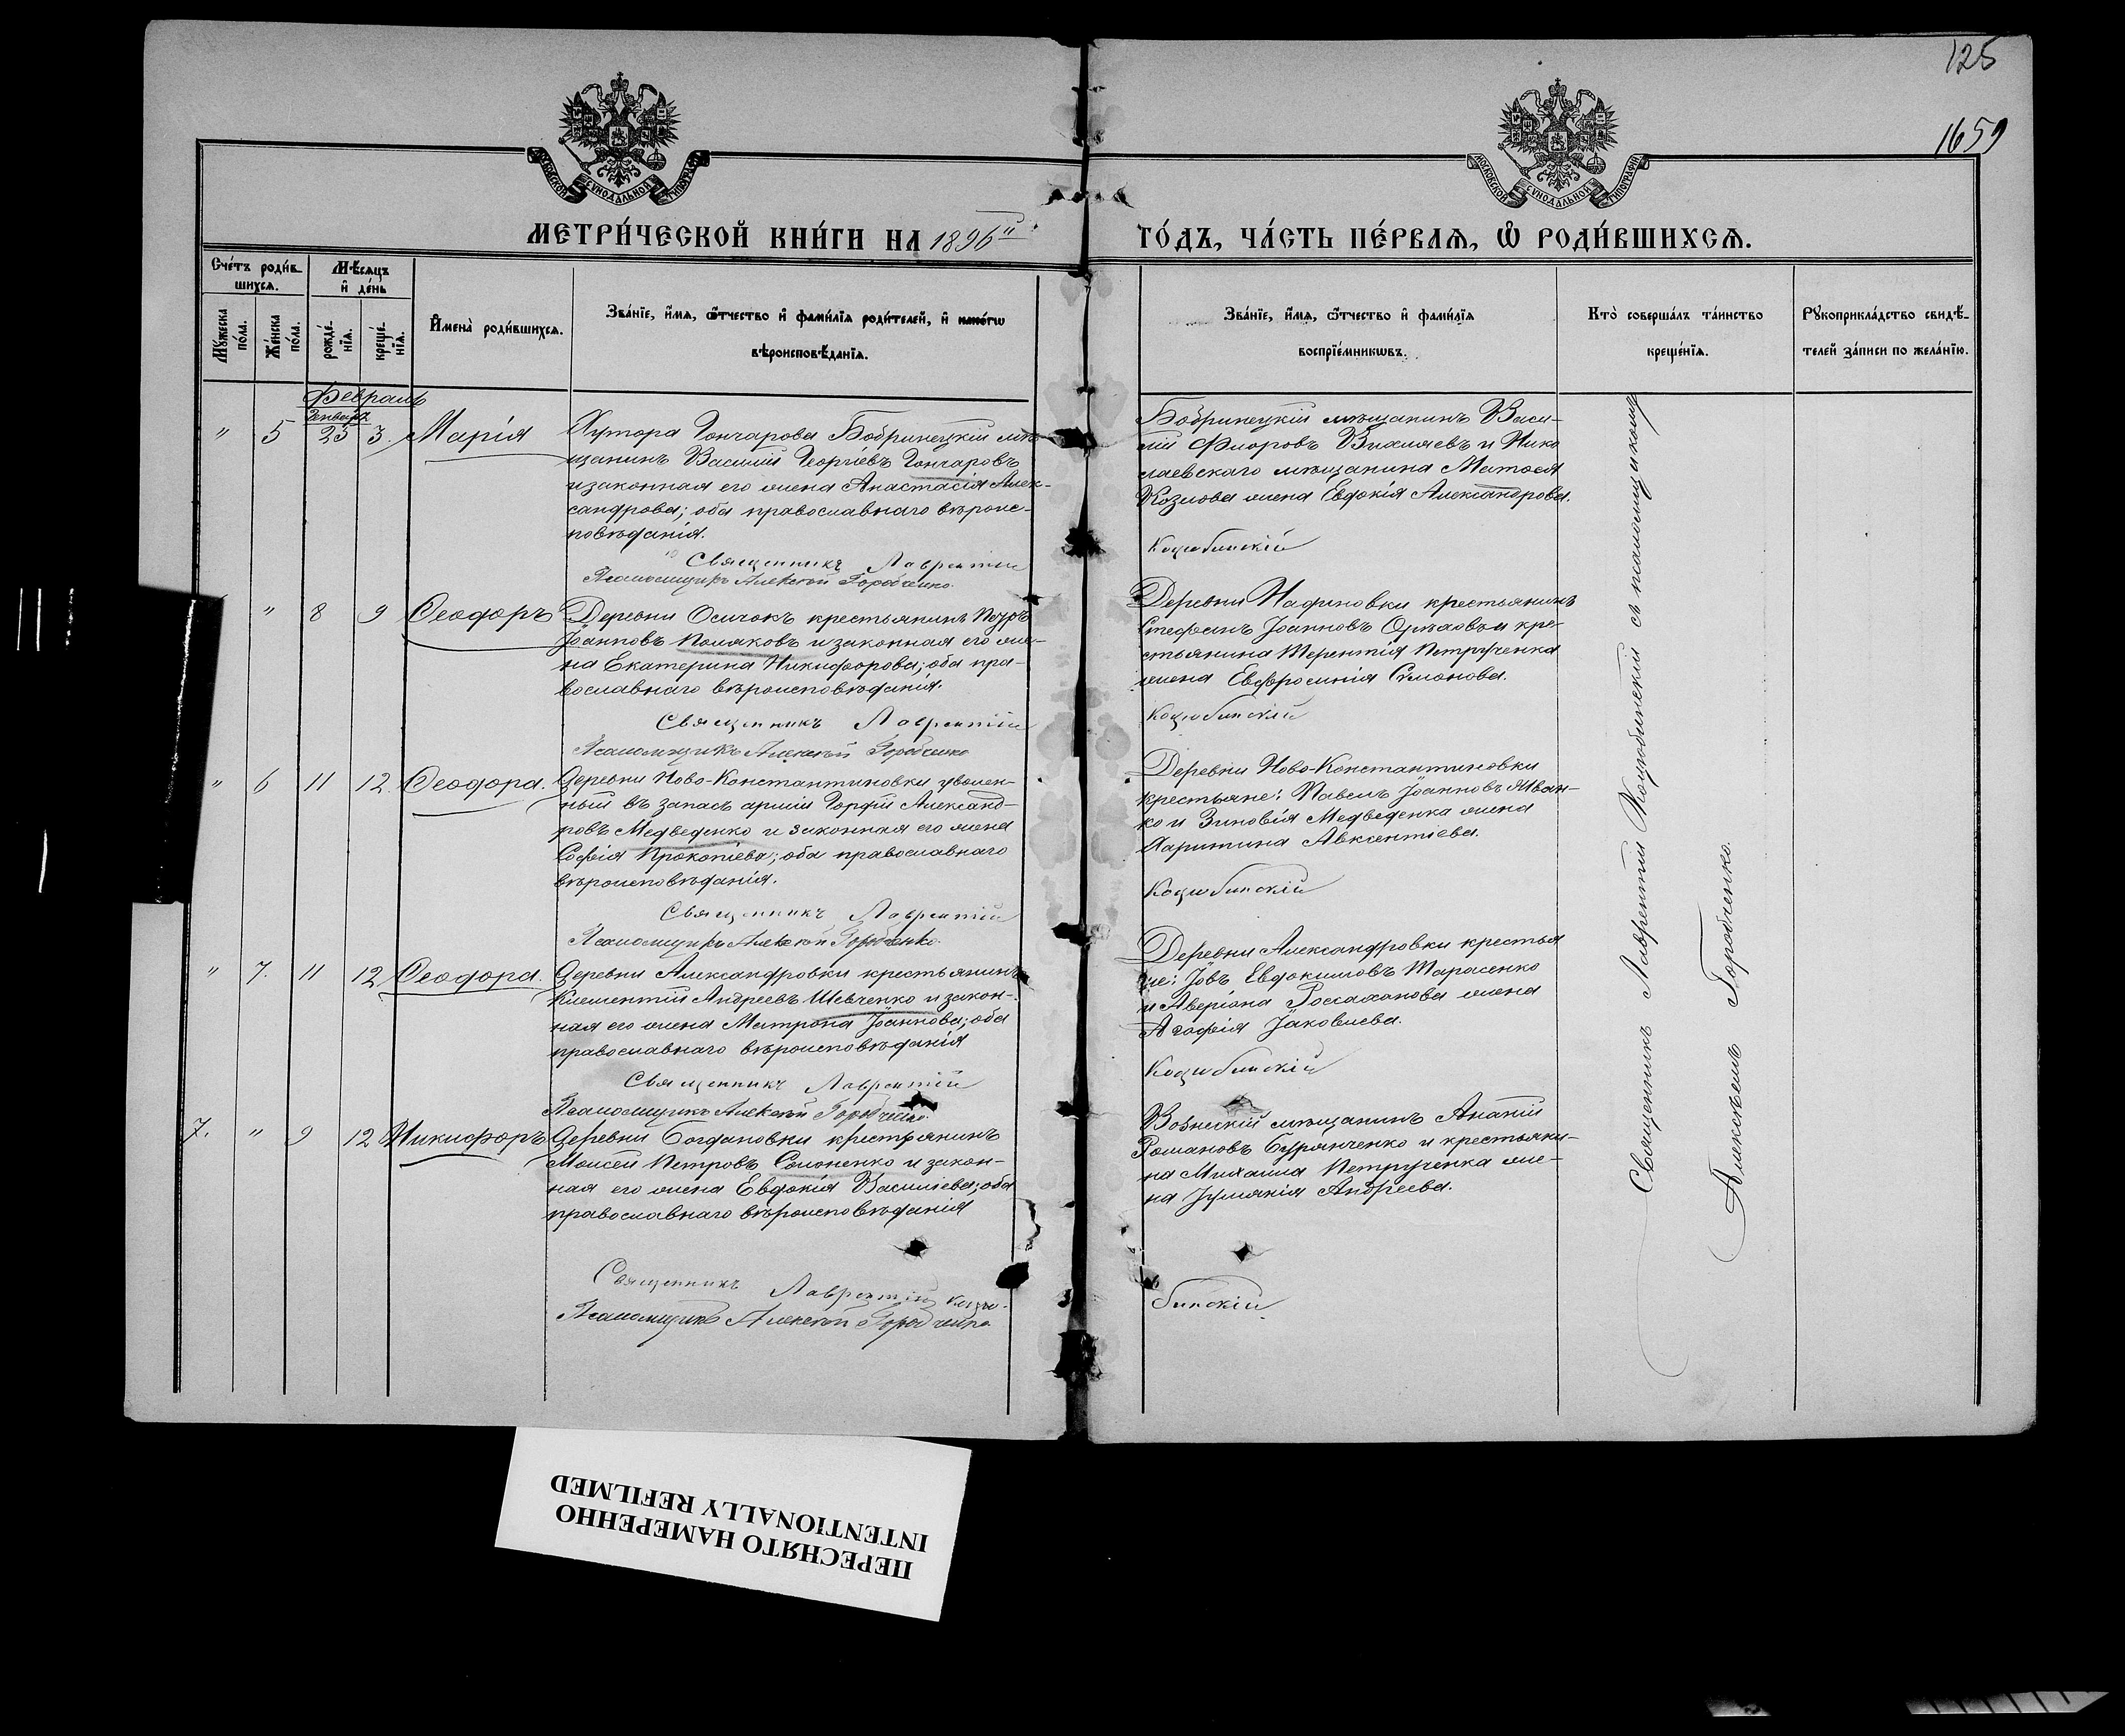 125
1659
МОСКОВСКОЙ СѴНОДАЛЬНОЙ ТИПОГРАФІИ
МОСКОВСКОЙ СѴНОДАЛЬНОЙ ТИПОГРАФІИ
МЕТРИ́ЧЕСКОЙ КНИ́ГИ НА 1896й
ГО́ДЪ, ЧА́СТЬ ПЕ́РВАѦ, Ѡ҆ РОДИ́ВШИХСѦ.
Сче́тъ роди́в-
шихсѧ.
Мꙋ́жеска по́ла.
Же́нска по́ла.
Мѣ́сяцъ
и҆ де́нь
рожде́-
нїѧ.
креще́-
нїѧ.
И҆мена̀ роди́вшихсѧ.
Зва́нїе, и҆́мѧ, ѻ҆́тчество и҆ фами́лїѧ роди́телей, и҆ како́гѡ
вѣроисповѣ́данїѧ.
Зва́нїе, и҆́мѧ, ѻ҆́тчество и҆ фами́лїѧ
воспрїе́мникѡвъ.
Кто̀ соверша́лъ та́инство
креще́нїѧ.
Рꙋкоприкла́дство свидѣ́-
телей за́писи по жела́нїю.
Февраль
Января
" 5 25 3. Марія
Хутора Гончарова Бобринецкій мѣ-
щанинъ Василій Георгіевъ Гончаровъ
и законная его жена Анастасія Алек-
сандрова; оба православнаго вѣроис-
повѣданія.
Священникъ Лаврентій
Псаломщикъ Алексѣй Горобченко
Бобринецкій мѣщанинъ Васи-
лій Флоровъ и Нико
лаевскаго мѣщанина Матѳея
Козлова жена Евдокія Александрова.
Коцюбинскій
" 8 9 Ѳеодоръ
Деревни Осичокъ крестьянинъ
Іоанновъ Поляковъ и законная его же-
на Екатерина Никифорова; оба пра-
вославнаго вѣроисповѣданія.
Священникъ Лаврентій
Псаломщикъ Алексѣй Горобченко
Деревни крестьянинъ
Стефанъ Іоанновъ и кре-
стьянина Терентія Петрученка
жена Евфросинія Симонова.
Коцюбинскій
" 6 11 12 Ѳеодора.
Деревни Ново-Константиновки уволен-
ный въ запасъ арміи Гордій Александ-
ровъ Медведенко и законная его жена
Софія Прокопіева; оба православнаго
вѣроисповѣданія.
Священникъ Лаврентій
Псаломщикъ Алексѣй Горобченко.
Деревни Ново-Константиновки
крестьяне: Павелъ Іоанновъ Иван-
ко и Зиновія Медведенка жена
Харитина Авксентіева.
Коцюбинскій
" 7. 11 12 Ѳеодора.
Деревни Александровки крестьянинъ
Климентій Андреевъ Шевченко и закон-
ная его жена Матрона Іоаннова; оба
православнаго вѣроисповѣданія
Священникъ Лаврентій
Псаломщикъ Алексѣй Горобченко.
Деревни Александровки крестья
не: Іовъ Евдокимовъ Тарасенко
и Аверіана жена
Агафія Іаковлева.
Коцюбинскій
7. " 9 12 Никифоръ
Деревни Богдановки крестьянинъ
Моисей Петровъ Солоненко и закон-
ная его жена Евдокія Василіева; оба
православнаго вѣроисповѣданія
Священникъ Лаврентій Коцю-
Псаломщикъ Алексѣй Горобченко
мѣщанинъ Ананій
Романовъ Бурянченко и крестьяни-
на Михаила Петрученка же-
на Іуліанія Андреева.
бинскій
Священникъ Лаврентій Коцюбинскій съ псаломщикомъ
Алексѣемъ Горобченко.
ПЕРЕСНЯТО НАМЕРЕННО
INTENTIONALLY REFILMED